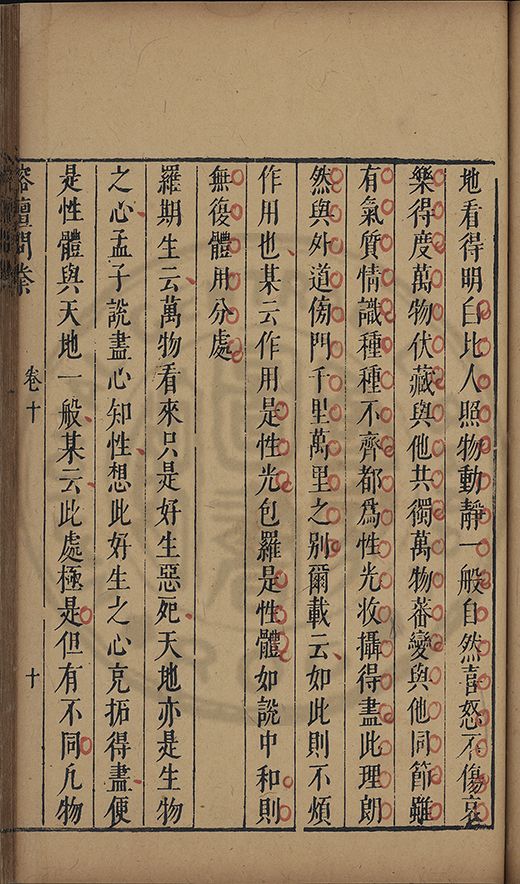 地看得明白比人照物動靜一般自然喜怒不傷哀
樂得度萬物伏藏與他共獨萬物蕃變與他同節雖
有氣質情識種種不齊都為性光收攝得盡此理朗
然與外道傍門千里萬里之别爾載云如此則不煩
作用也某云作用是性光包羅是性體如說中和則
無復體用分處
羅期生云萬物看來只是好生惡死天地亦是生物
之心孟子說盡心知性想此好生之心克拓得盡便
是性體與天地一般某云此處極是但有不同凡物
榕壇問業
卷十
十